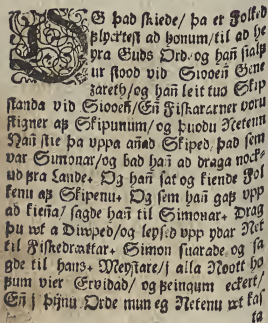 OG þad skiede/ þa er Folked
þlycktest ad honum/til ad he
yra Guds Ord, og hañ sialf
ur stood vid Siooeñ Gene
zareth/ og hañ leit tuo Skip
standa vid Siooeñ/ Eñ Fiskararner voru
stigner aß Skipunum/ og þuodu Netenn
Hañ stie þa vppa añad Skiped/ þad sem
var Simonar/ og bad hañ ad draga nock-
ud ßra Lande. Og hañ sat og kiende Fol
kenu aß Skipenu. Og sem hañ gaß vpp
ad kieña/ sagde hañ til Simonar. Drag
þu wt a Diwped/og leysed vpp ydar Net
til Fiskedrættar. Simon suarade og sa
gde til hans. Meystare/ j alla Noott ho
ßum vier Ervidad/ og ßeingum eckert/
Eñ j þijnu Orde mun eg Netenu wt kas
ta